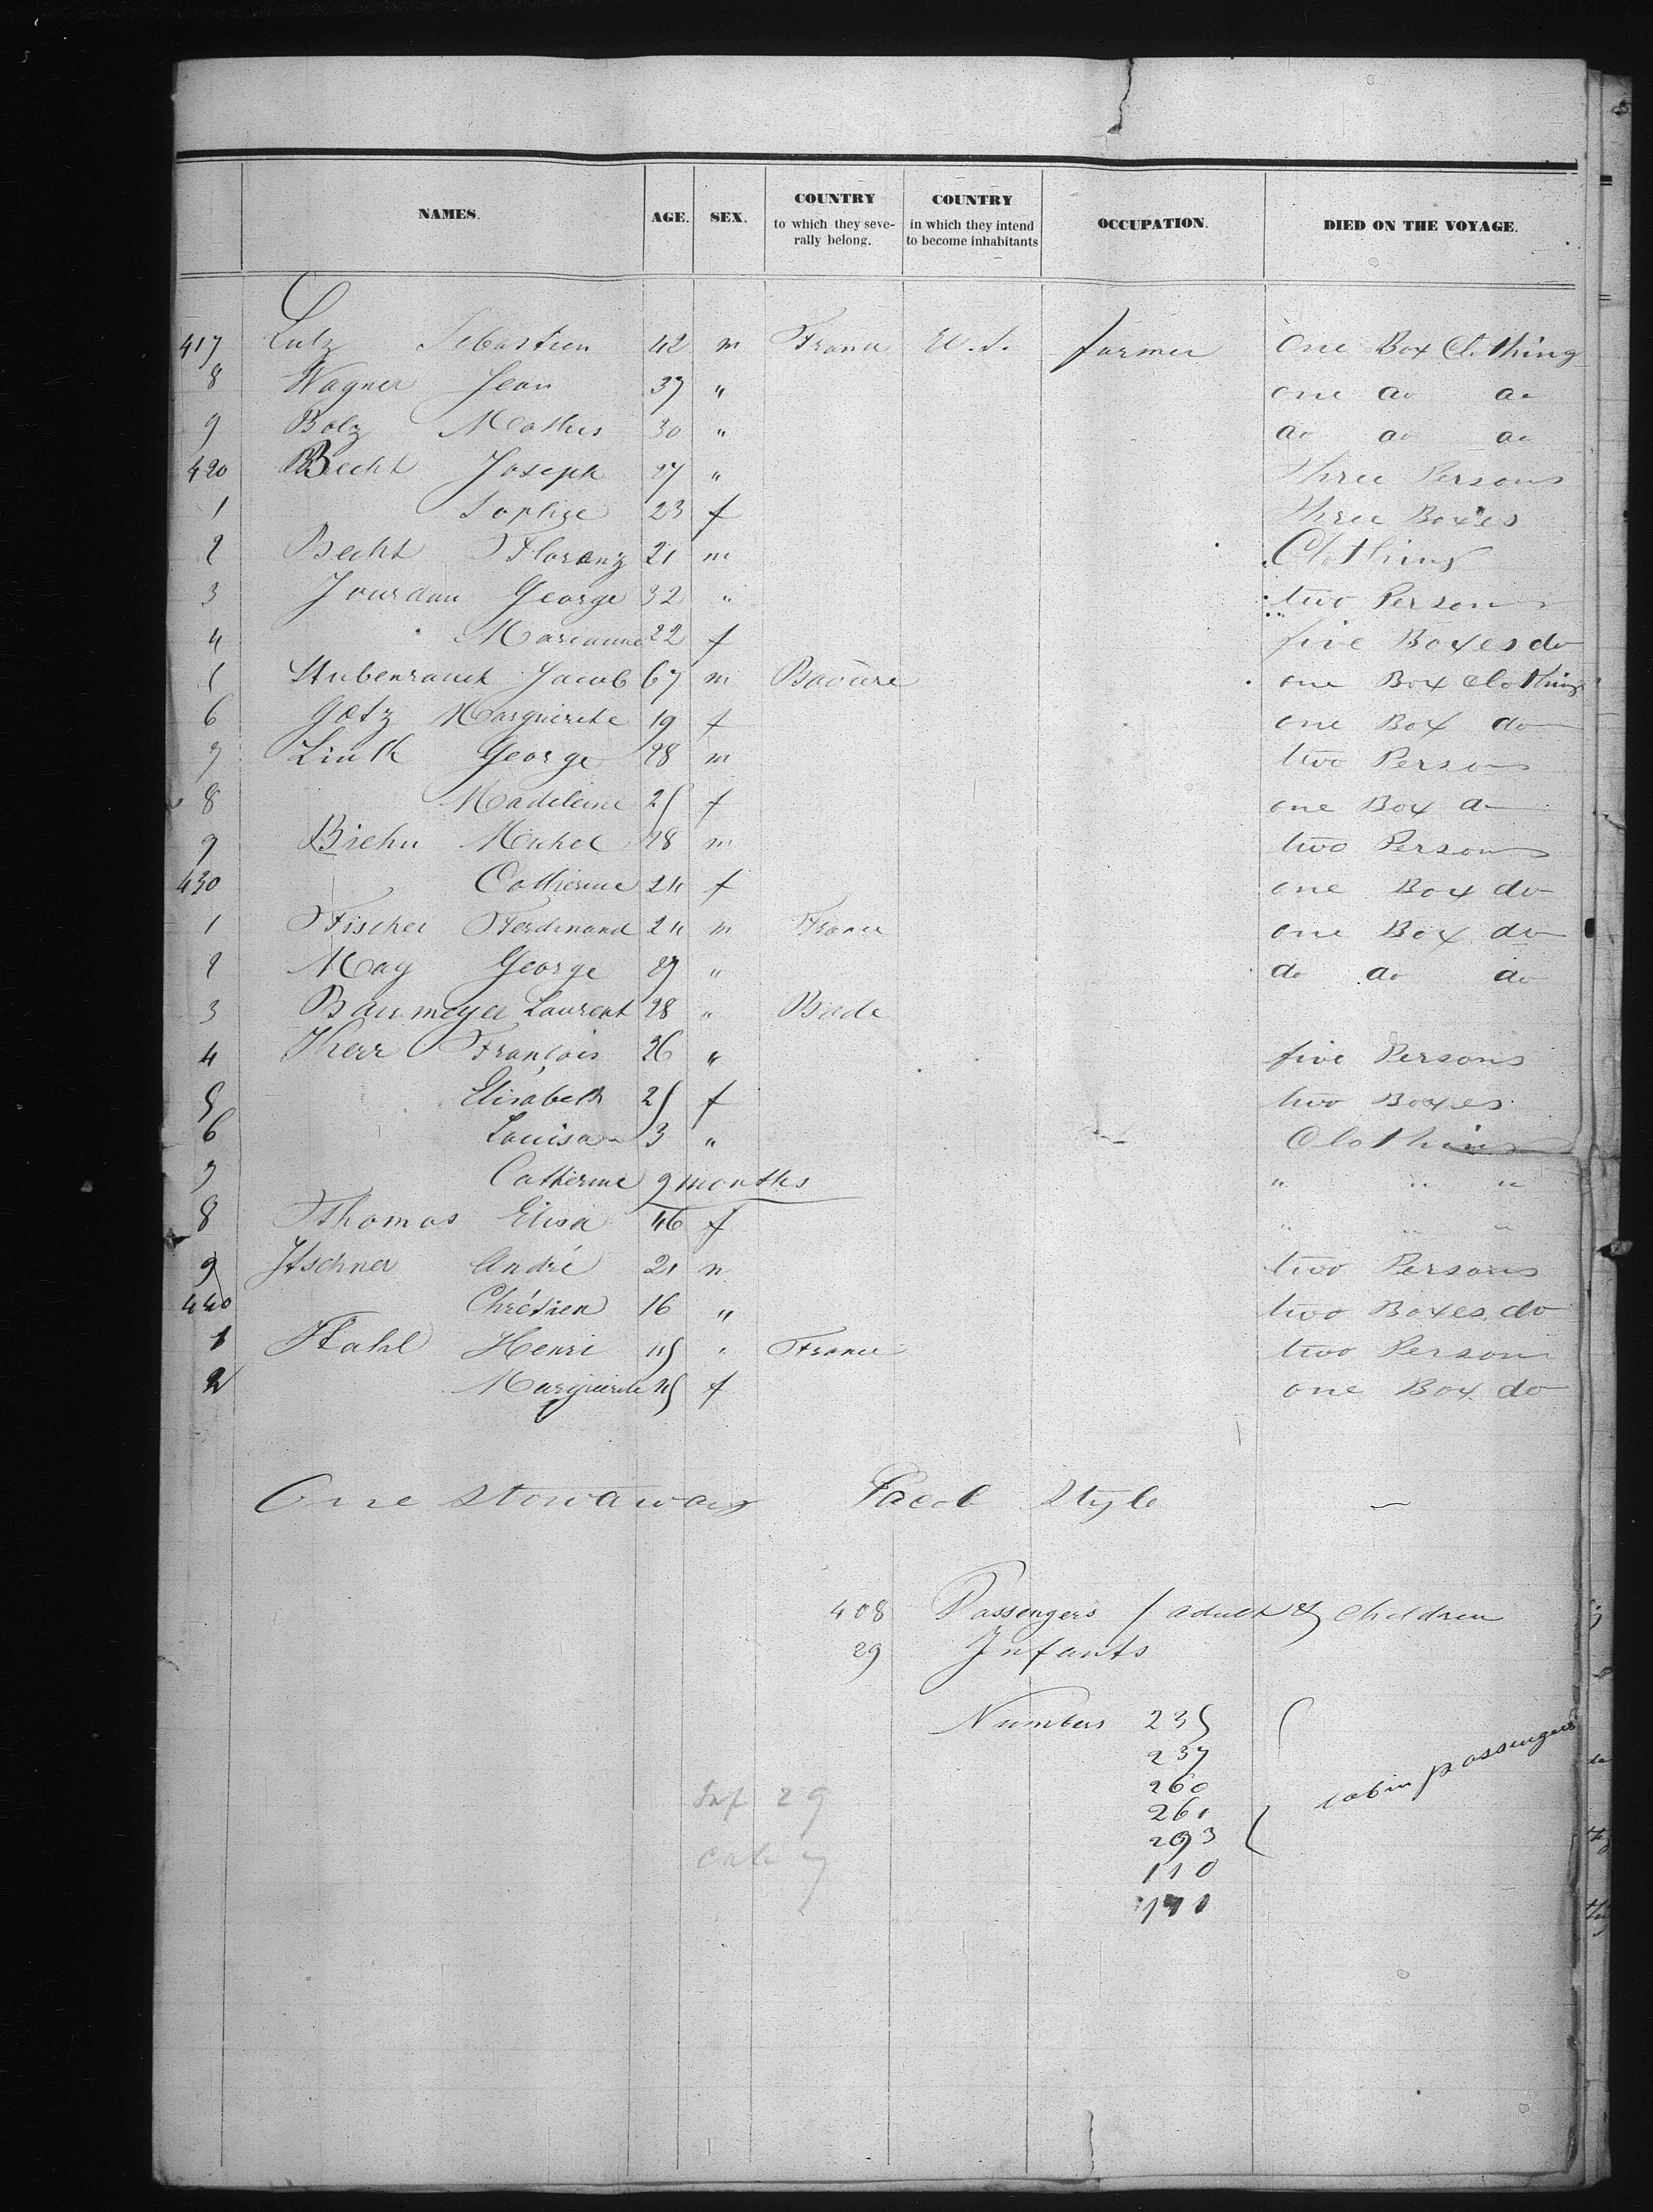 NAMES. AGE. SEX. COUNTRY to which they severally belong. COUNTRY in which they intend to become inhabitants OCCUPATION. DIED ON THE VOYAGE.
417 Lutz Sebastien 42 m France U. S. farmer One Box Clothing
8 Wagner Jean 37 " one do do
9 Bolz Mathis 30 " do do do
420 Becht Joseph 27 " Three Persons
1 Sophie 23 f Three Boxes
2 Becht Florenz 21 m Clothing
3 Jourdan George 32 " two Persons
4 Marianne 22 f five Boxes do
5 Stubenrauch Jacob 67 m Baviere one Box Clothing
6 Götz Marguerite 19 f one Box do
7 Link George 28 m two Persons
8 Madeleine 25 f one Box do
9 Biehn Michel 28 m two Persons
430 Catherine 24 f one Box do
1 Fischer Ferdinand 24 m France one Box do
2 May George 27 " do do do
3 Baumeyer Laurent 28 " Bade
4 Kerr François 26 " five Persons
5 Elisabeth 25 f two Boxes
6 Louisa 3 " Clothing
7 Catherine 9 months " " "
8 Thomas Elisa 46 f " " "
9 Itschner André 21 m two Persons
440 Chrétien 16 " two Boxes do
1 Stahl Henri 45 " France two Persons
2 Marguerite 45 f one Box do
One stowaway Jacob Style —
408 Passengers / adult & Children
29 Infants
Numbers 235
237
260
261
293
110
cabin passengers
Inf 29